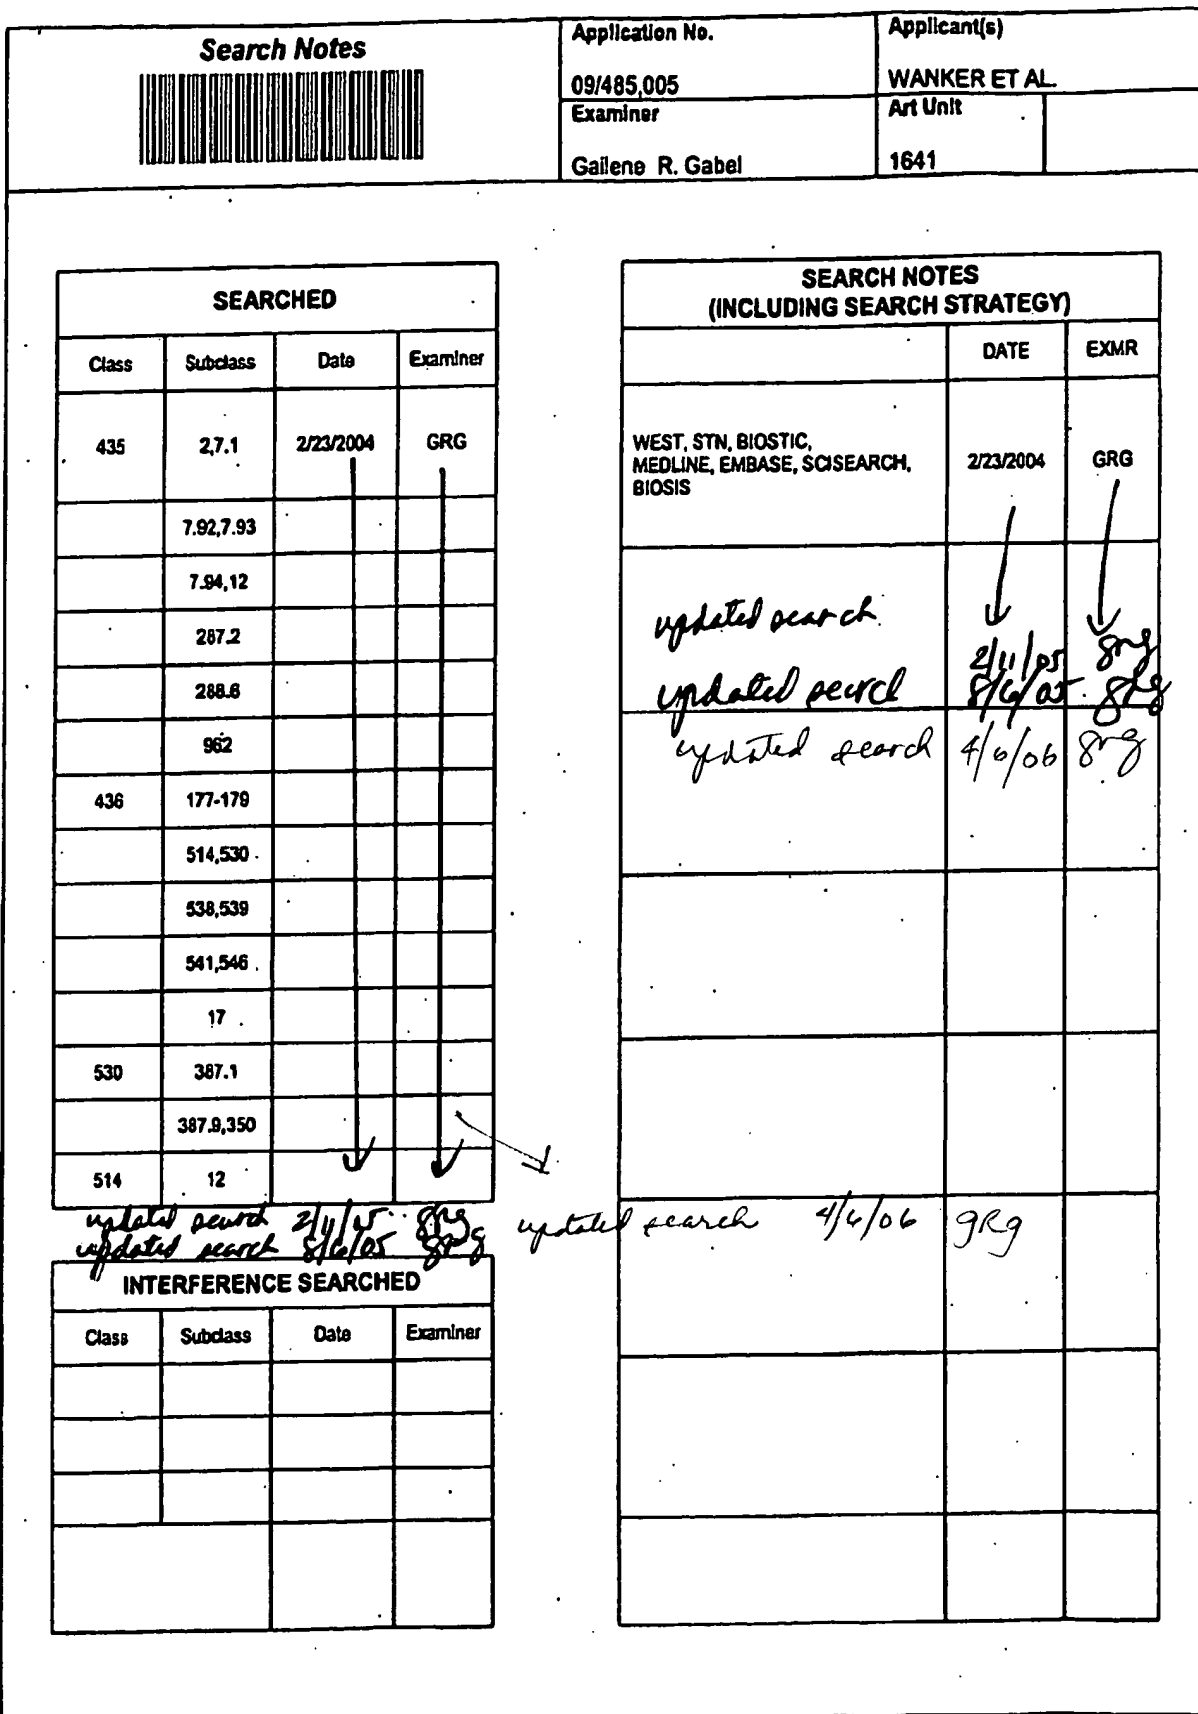 Search Notes
Application No.
09/485,005
Applicant(s)
WANKER ET AL.
Examiner
Gailene R. Gabel
Art Unit
1641
SEARCHED
Class Subclass Date Examiner
435 2,7.1 2/23/2004 GRG
7.92,7.93
7.94,12
287.2
288.6
962
436 177-179
514,530
538,539
541,546
17
530 387.1
387.9,350
514 12
updated search 2/11/05 grg
updated search 8/6/05 grg
updated search 4/6/06 gRg
INTERFERENCE SEARCHED
Class Subclass Date Examiner
SEARCH NOTES
(INCLUDING SEARCH STRATEGY)
DATE EXMR
WEST, STN, BIOSTIC,
MEDLINE, EMBASE, SCISEARCH,
BIOSIS
2/23/2004 GRG
updated search 2/11/05 grg
updated search 8/6/05 grg
updated search 4/6/06 grg